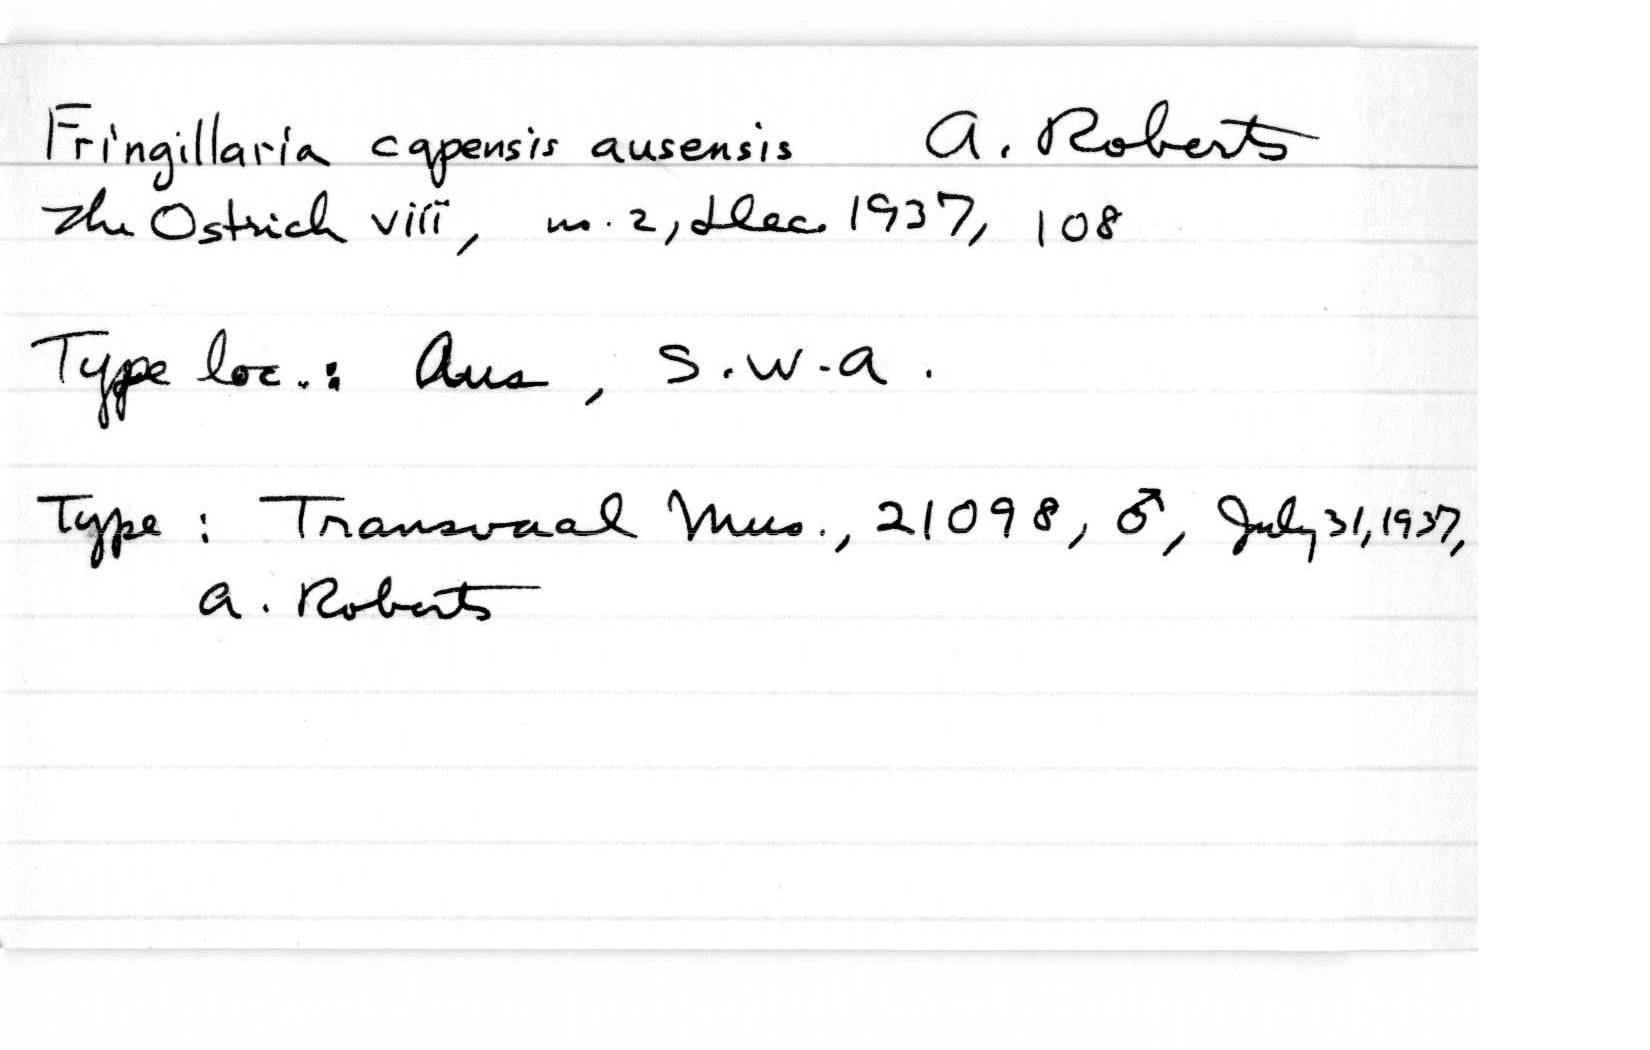 Fringillaria capensis ausensis A. Roberts
The Ostrich viii, no. 2, Dec. 1937, 108
Type loc.: Aus, S.W.A.
Type: Transvaal Mus., 21098, ♂, July 31, 1937,
A. Roberts